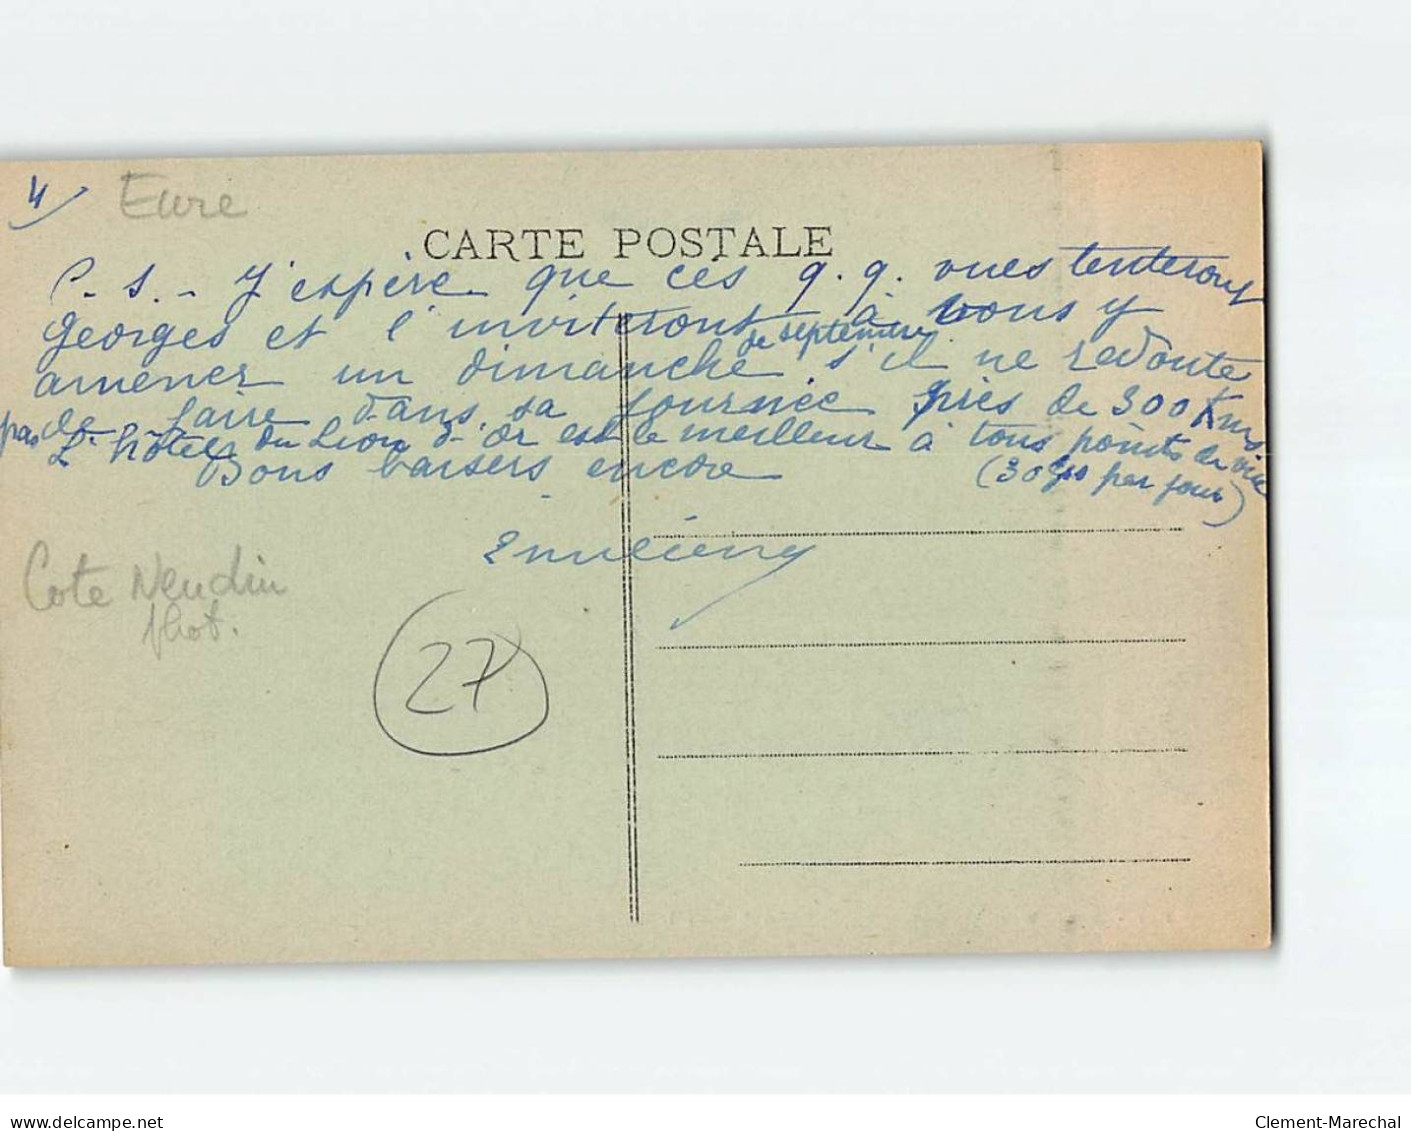 4/ Eure
CARTE POSTALE
P.S. - J'espère que ces q.q. vues tenteront
Georges et l'inviteront à vous y
de septembre
amener un dimanche s'il ne redoute
pas de faire dans sa journée près de 300 Kms
L'hôtel du Lion d'or est le meilleur à tous points de vue
(30 frs par jour)
Bons baisers encore
Cote Neudin
phot.
27
www.delcampe.net
Clement-Marechal